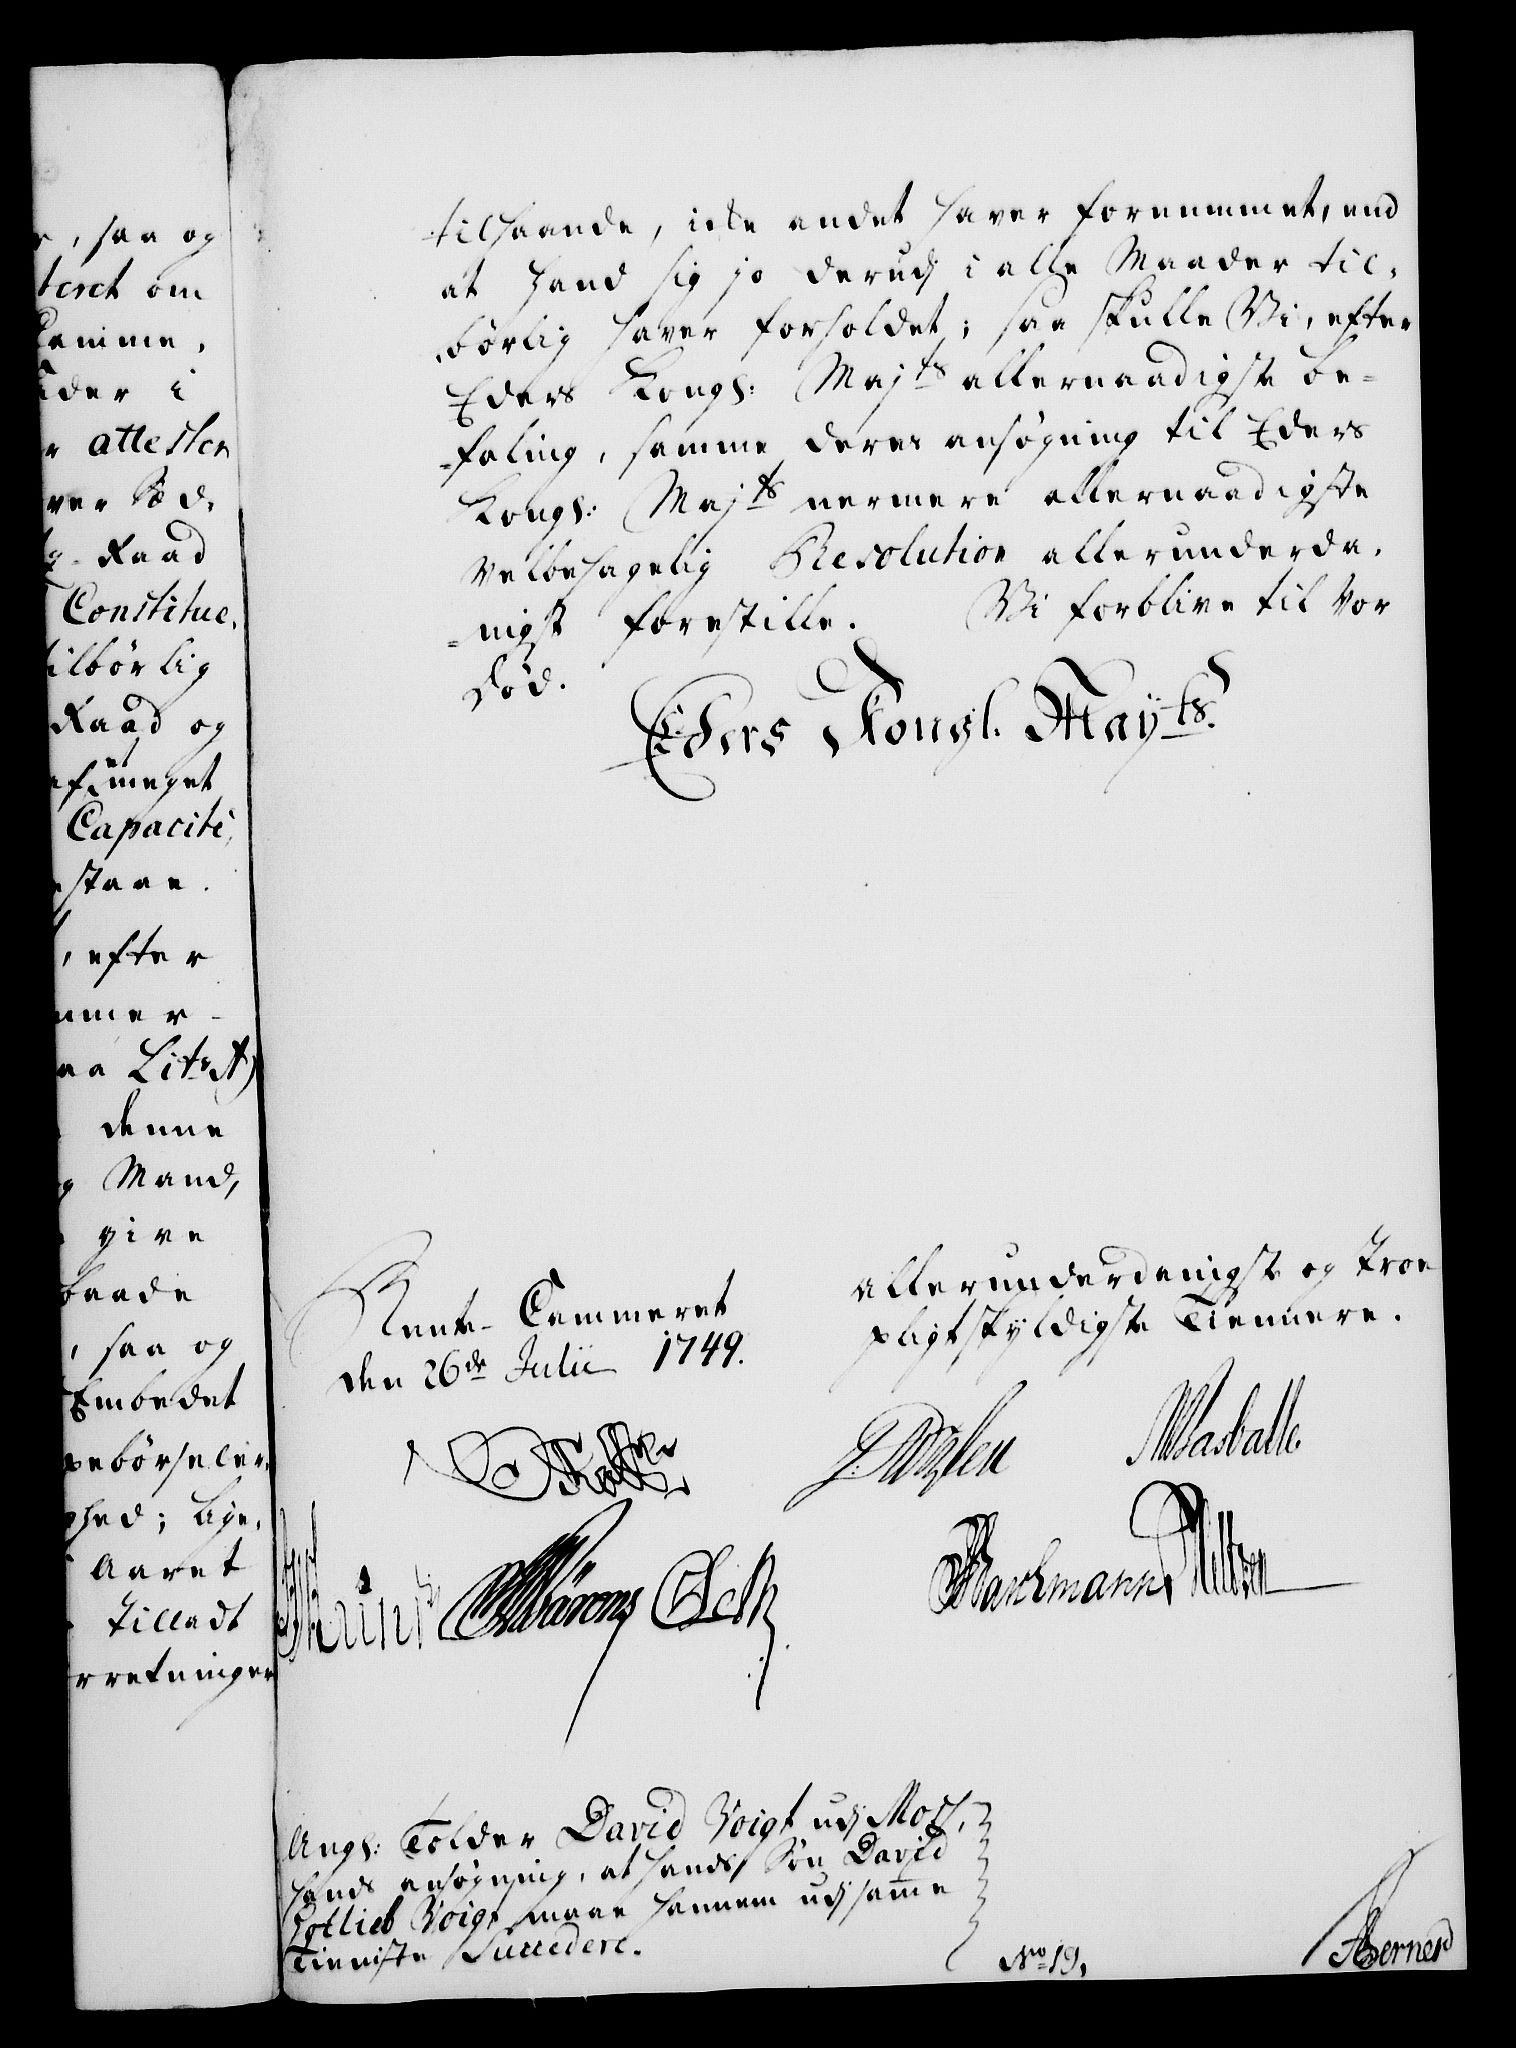 , saa og
teret om
Camme,
ider i
r attester
ver Sød,
g-Raad
Constitue,
tilbørlig
Raad og
af meget
Capacité,
staae.
, efter
mmer-
aa Litr A)
denne
g Mand,
give
baade
, saa og
Embedet
pebørseler,
ghed; lige,
Aaret
tilladt
rretninger
tilhaande, icke andet haver fornemmet, end
at hand sig jo derudj i alle Maader til,
børlig haver forholdet; saa skulle Vi, efter
Eders Kongl: Majts allernaadigste be=
=faling, samme deres ansøgning til Eders
Kongl: Majts nermere allernaadigste
velbehagelig Resolution allerunderda,
=nigst forestille. Vi forblive til vor
død.
Eders Kongl. Mayts.
Rente-Cammeret
den 26de Julii 1749.
allerunderdanigste og troe
pligtskyldigste Tiennere.
Angl: Tolder David Voigt udj Moss,
hands ansøgning, at hands Søn David
Gotlieb Voigt maae hannem udj samme
Tieniste Succedere.
No 19,